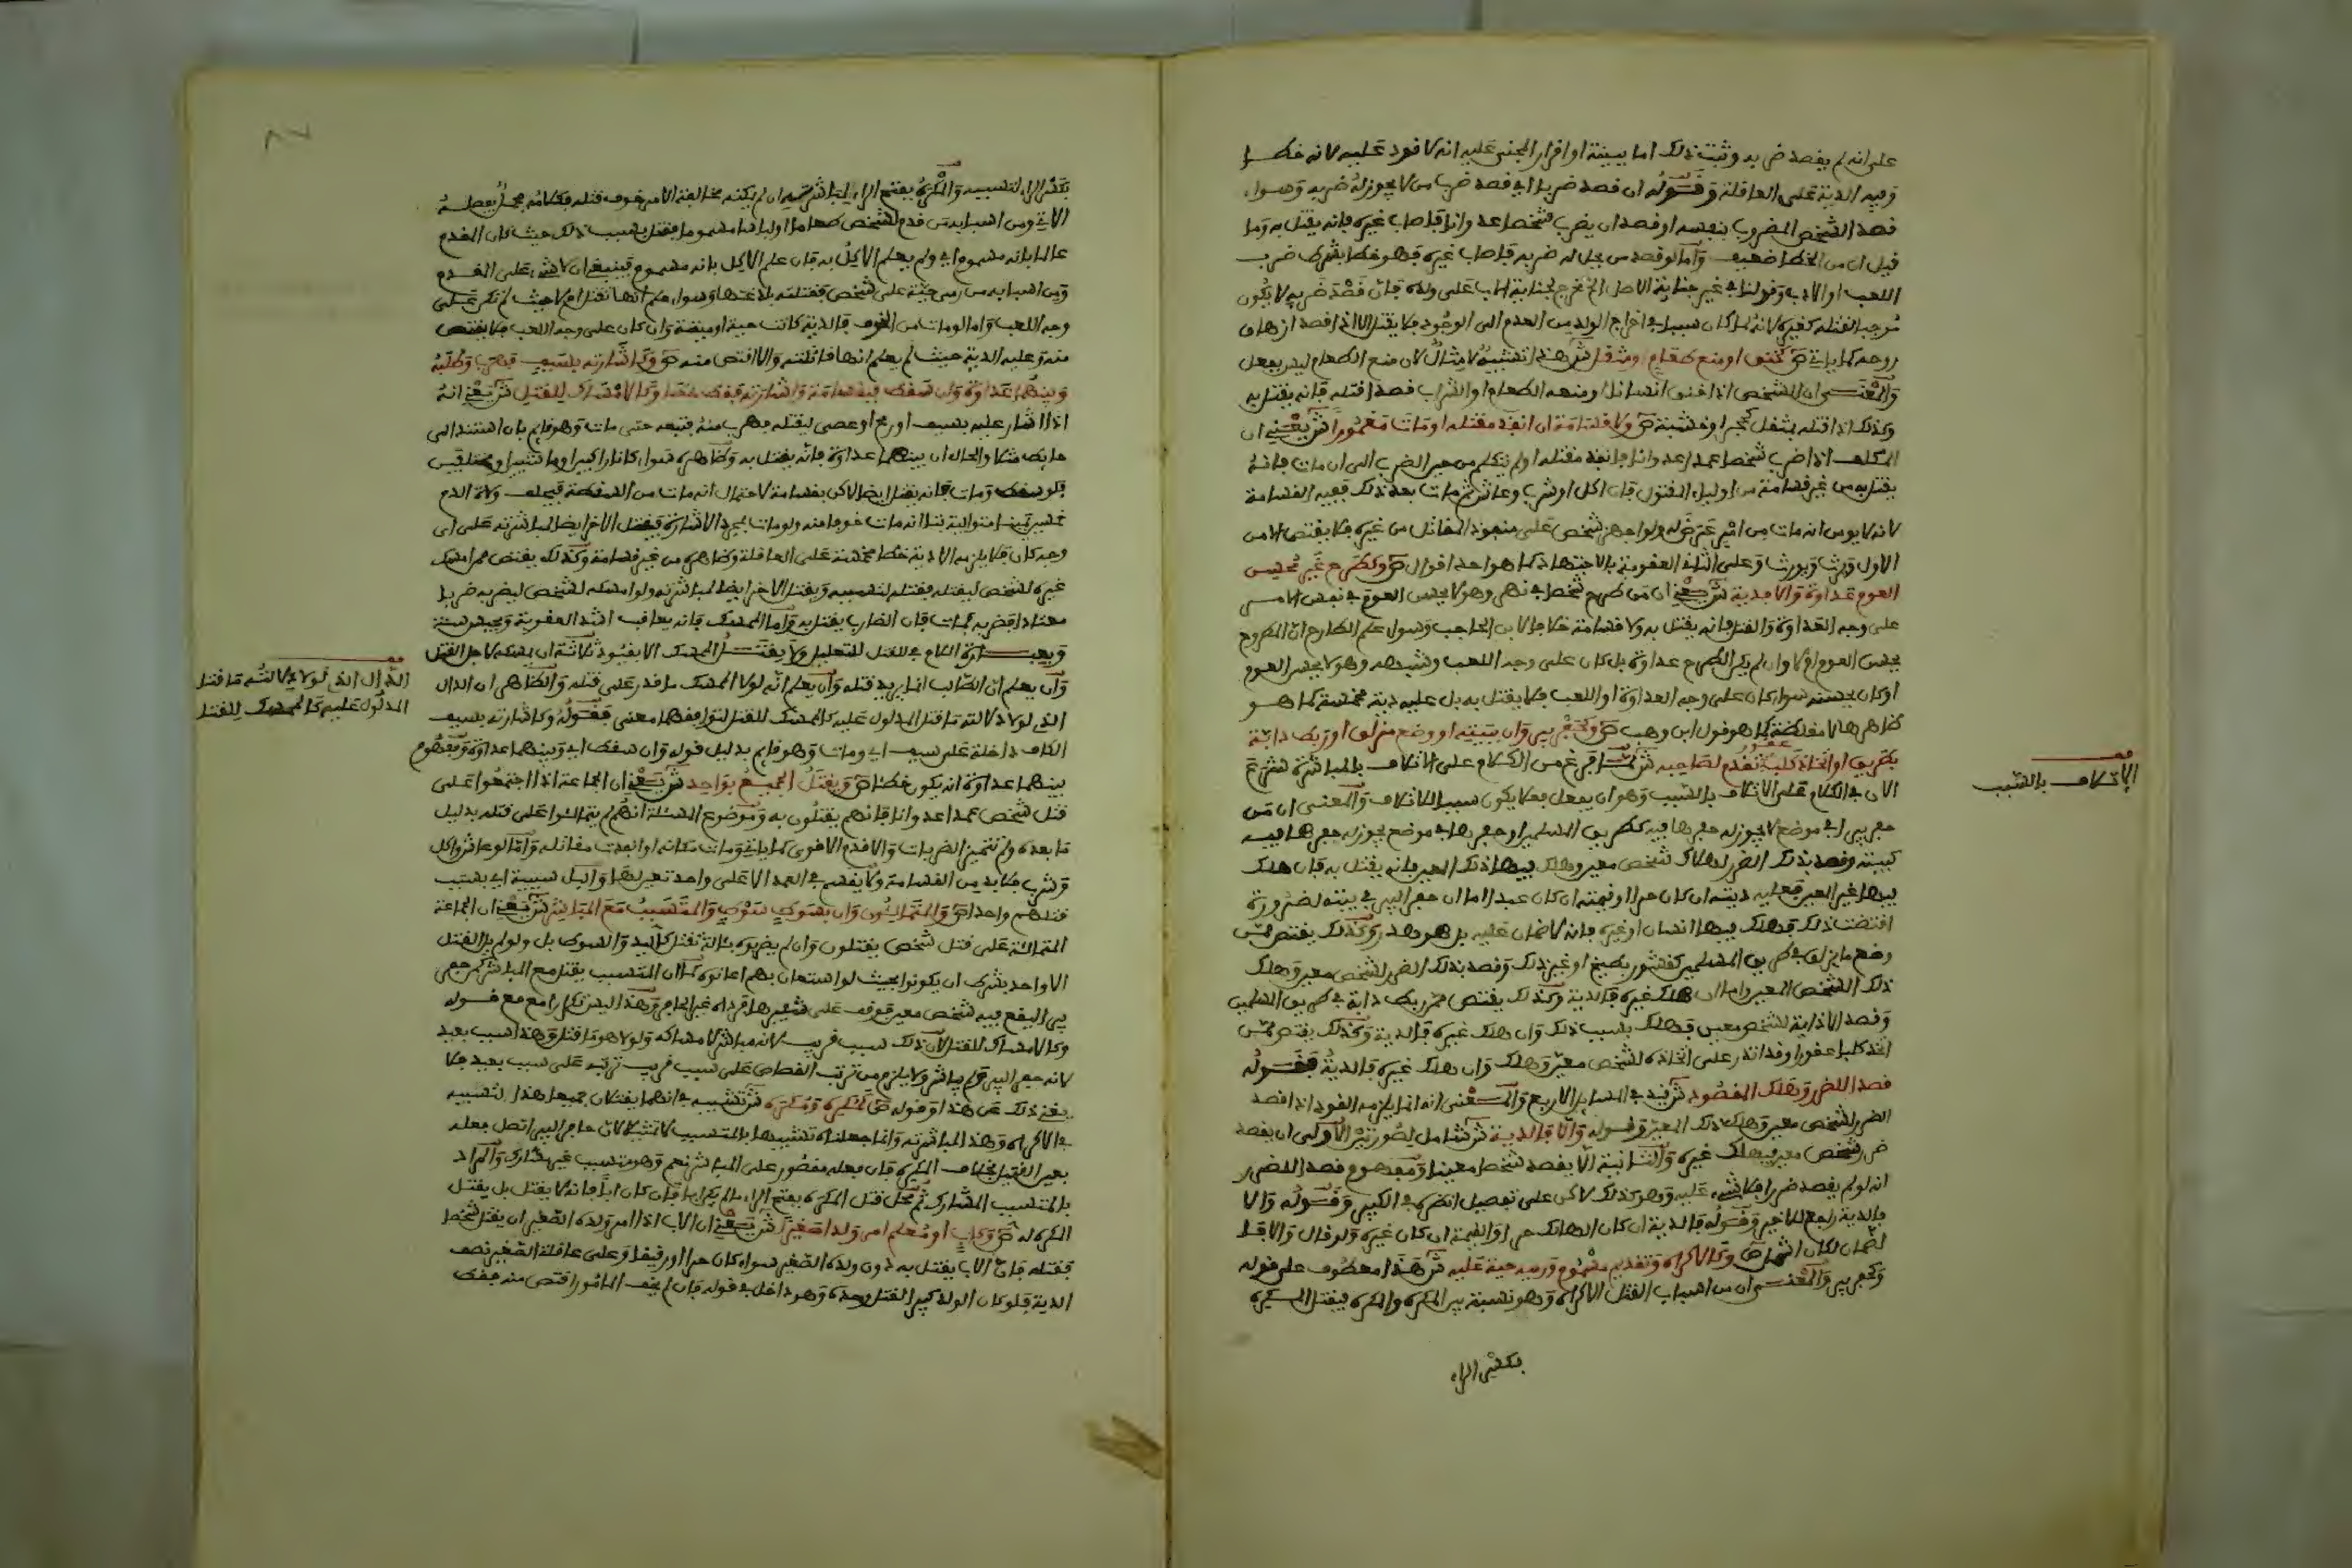 على انه لم يقصد ضربه وثبت ذلك اما ببينة او اقرار المجني عليه انه لا قود عليه لانه خطأ
وفيه الدية على العاقلة وقوله ان قصد ضربا اي قصد ضرب من لا يجوز له ضربه وسواء
قصد الشخص المضروب بنفسه او قصد ان يضرب شخصا عدوانا فاصاب غيره فانه يقتل به وما
قيل ان من الخطا ضعيف واما لو قصد من يحل له ضربه فاصاب غيره فهو خطا بشرط ضرب
اللعب او الادب وقولنا في غير جناية الاصل الخ مخرج لجناية الاب على ولده فان قصد ضربه لا يكون
موجبا لقتله كغيره لانه لما كان سببا في اخراج الولد من العدم الى الوجود فلا يقتل الا اذا قصد ازهاق
روحه كما ياتي ص كخنق او منع طعام ومثقل ش هذا تشبيه لا مثال لان منع الطعام ليس بفعل
والمعنى ان الشخص اذا خنق انسانا او منعه الطعام او الشراب قصدا لقتله فانه يقتل به
وكذلك اذا قتله بمثقل كحجر او خشبة ص ولا قسامة ان انفذ مقتله او مات مغمورا ش يعني ان
المكلف اذا ضرب شخصا عمدا عدوانا فانفذ مقتله او لم يتكلم من حين الضرب الى ان مات فانه
يقتل به من غير قسامة من اولياء المقتول فان اكل او شرب وعاش ثم مات بعد ذلك ففيه القسامة
لانه لا يومن انه مات من امر عرض له ولو اجهز شخص على منفوذ المقاتل من غيره فلا يقتص الا من
الاول ويرث ويورث وعلى الثاني العقوبة بالاجتهاد كما هو احد اقوال ص وكطرح غير محسن
العوم عداوة والا فدية ش يعني ان من طرح شخصا في نهر وهو لا يحسن العوم في نفس الامر
على وجه العداوة والقتل فانه يقتل به ولا قسامة خلافا لابن الحاجب وسواء علم الطارح ان المطروح
يحسن العوم او لا وان لم يكن الطرح عداوة بل كان على وجه اللعب وشبهه وهو لا يحسن العوم
او كان يحسنه سواء كان على وجه العداوة او اللعب فلا يقتل به بل عليه دية مخمسة كما هو
ظاهرها لا مغلظة كما هو قول ابن وهب ص وكحفر بير وان ببيته او وضع مزلق او ربط دابة
بطريق او اتخاذ كلب عقور تقدم لصاحبه ش لما فرغ من الكلام على الاتلاف بالمباشرة شرع
الان في الكلام على الاتلاف بالسبب وهو ان يفعل فعلا يكون سببا للاتلاف والمعنى ان من
حفر بيرا في موضع لا يجوز له حفرها فيه كطريق المسلمين او حفرها في موضع يجوز له حفرها فيه
كبيته وقصد بذلك الضرر لهلاك شخص معين وهلك فيها ذلك المعين فانه يقتل به فان هلك
فيها غير المعين فعليه ديته ان كان حرا او قيمته ان كان عبدا اما ان حفر البير في بيته لضرورة
اقتضت ذلك فهلك فيها انسان او غيره فانه لا ضمان عليه بل هو هدر وكذلك يقتص ممن
وضع ما يزلق في طريق المسلمين كقشور بطيخ او غير ذلك وقصد بذلك الضرر لشخص معين وهلك
ذلك الشخص المعين واما ان هلك غيره فالدية وكذلك يقتص ممن ربط دابة في طريق المسلمين
وقصد الاذاية لشخص معين فهلك بسبب ذلك وان هلك غيره فالدية وكذلك يقتص ممن
اتخذ كلبا عقورا وقد انذر على اتخاذه لشخص معين وهلك وان هلك غيره فالدية فقوله
قصدا للضرر وهلك المقصود ش قيد في المسايل الاربع والمعنى انه انما يلزمه القود اذا قصد
الضرر لشخص معين وهلك ذلك المعين وقوله والا فالدية ش شامل لصورتين الاولى ان يقصد
ضرر شخص معين فيهلك غيره والثانية الا يقصد شخصا معينا ومفهوم قصدا للضرر
انه لو لم يقصد ضررا فلا شيء عليه وهو كذلك لاكن على تفصيل انظره في الكبير وقوله والا
فالدية راجع للاخير وقوله فالدية ان كان الهالك حرا او القيمة ان كان غيره ولو قال والا فا
لضمان لكان اشمل ص وكالاكراه وتقديم مسموم ورميه حية عليه ش هذا معطوف على قوله
وكحفر بير والمعنى ان من اسباب القتل الاكراه وهو نسبة بين المكره والمكره فيقتل المكره
بكسر الراء
مف
الاتلاف بالسبب
بكسر الراء لتسببه والمكره بفتح الراء لمباشرته ان لم يمكنه مخالفة الامر خوف قتله فكلامه مجمل يفصله
الاتي ومن اسبابه من قدم لشخص طعاما او لباسا مسموما فقتل بسبب ذلك حيث كان المقدم
عالما بانه مسموم اي ولم يعلم الاكل به فان علم الاكل بانه مسموم فينبغي ان لا شيء على المقدم
ومن اسبابه من رمى حية على شخص فقتلته بلدغتها وسواء علم انها تقتل ام لا حيث لم تكن على
وجه اللعب واما لو مات من الخوف فالدية كانت حية او ميتة وان كان على وجه اللعب فلا يقتص
منه وعليه الدية حيث لم يعلم انها قاتلته والا اقتص منه ص وكاشارته بسيف فهرب وطلبه
وبينهما عداوة وان سقط فبقسامة واشارته فقط خطا وكالامساك للقتل ش يعني انه
اذا اشار عليه بسيف او رمح او عصى ليقتله فهرب منه فتبعه حتى مات وهو قايم بان استند الى
حايط مثلا والحال ان بينهما عداوة فانه يقتل به وظاهره سواء كانا راكبين او ماشيين او مختلفين
فلو سقط ومات فانه يقتل ايضا لاكن بقسامة لاحتمال انه مات من السقطة فيحلف ولاة الدم
خمسين يمينا متوالية بتا انه مات خوفا منه ولو مات بمجرد الاشارة فيقتل الاخر ايضا لمباشرته على اي
وجه كان فلا يلزمه الا دية خطا مخمسة على العاقلة وظاهره من غير قسامة وكذلك يقتص ممن امسك
غيره لشخص ليقتله فقتله لتسببه ويقتل الاخر ايضا لمباشرته ولو امسكه لشخص ليضربه ضربا
معتادا فضربه فمات فان الضارب يقتل به واما الممسك فانه يعاقب اشد العقوبة ويحبس سنة
وبعبارة اللام في للقتل للتعليل ولا يقتل الممسك الا بقيود ثلاثة ان يمسكه لاجل القتل
وان يعلم ان الطالب انما يريد قتله وان يعلم انه لولا الممسك ما قدر على قتله والظاهر ان الدال
الذي لولا دلالته ما قتل المدلول عليه كالممسك للقتل لتوافقهما معنى فقوله وكاشارته بسيف
الكاف داخلة على سيف اي ومات وهو قايم بدليل قوله وان سقط اي وبينهما عداوة ومفهوم
بينهما عداوة انه يكون خطا ص ويقتل الجميع بواحد ش يعني ان الجماعة اذا اجتمعوا على
قتل شخص عمدا عدوانا فانهم يقتلون به وموضوع المسئلة انهم لم يتمالئوا على قتله بدليل
ما بعده ولم تتميز الضربات والا قدم الاقوى كما ياتي ومات مكانه او انفذت مقاتله واما لو عاش واكل
وشرب فلا بد من القسامة ولا يقسم في العمد الا على واحد تعين لها والباء سببية اي بسبب
قتلهم واحدا ص والمتمالئون وان بسوط سوط والمتسبب مع المباشر ش يعني ان الجماعة
المتمالئة على قتل شخص يقتلون وان لم يضربوه بئالة تقتل كاليد والسوط بل ولو لم يل القتل
الا واحد بشرط ان يكونوا بحيث لو استعان بهم اعانوه كما ان المتسبب يقتل مع المباشر كمن حفر
بيرا ليقع فيه شخص معين فوقف على شفيرها فرداه غير الحافر وهذا ليس تكرارا مع قوله
وكالامساك للقتل لان ذلك سبب قريب لانه مباشر لامساكه ولولا هو ما قتل وهذا سبب بعيد
لانه حفر البير ولم يباشر ولا يلزم من ترتب القصاص على سبب قريب ترتبه على سبب بعيد فلا
يغني ذلك عن هذا وقوله ص كمكره ومكره ش تشبيه في انهما يقتلان جميعا هذا لتسببه
في الاكراه وهذا لمباشرته وانما جعلناه تشبيها بالمتسبب لا تمثيلا لان حافر البير اتصل فعله
بعين القتيل بخلاف المكره فان فعله مقصور على المباشر نعم وهو متسبب غير مشارك والمراد
بالمتسبب المشارك ثم محل قتل المكره بفتح الراء ما لم يكن ابا فان كان ابا فانه لا يقتل بل يقتل
المكره له ص وكاب او معلم امر ولدا صغيرا ش يعني ان الاب اذا امر ولده الصغير ان يقتل شخصا
فقتله فان الاب يقتل به دون ولده الصغير سواء كان حرا او رقيقا وعلى عاقلة الصغير نصف
الدية فلو كان الولد كبيرا لقتل وحده وهو داخل في قوله فان لم يخف المامور اقتص منه فقط
مف
الدال الذي لولا دلالته ما قتل
المدلول عليه كالممسك للقتل